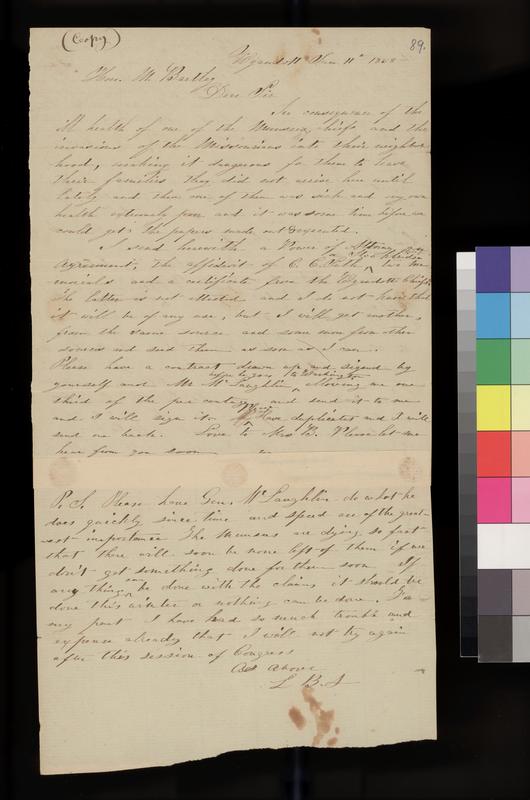 (Copy)
89.
Wyandott 11th
Hon. M. Bartley
Dear Sir
In consequence of the
ill health of one of the Munsee chiefs and the
invasions of the Missourians into their neighbor
hood, making it dangerous for them to leave
their families they did not arrive here until
lately and then one of them was sick and my own
health extremely poor and it was some time before we
could get the papers made out & executed.
I send herewith a Power of Attorney, an
Agreement, The affidavit of C. C. two me
morials and a certificate from the Wyandott Chiefs
The latter is not attested and I do not know that
it will be of any use, but I will get another,
from the same source and some more from other
sources and send them as soon as I can.
Please have a contract drawn up and signed by
yourself and Mr McLaughlin allowing me one
third of the per centage and send it to me
and I will sign it. Have duplicates and I will
send one back. Love to Mrs B. Please let me
hear from you soon
P. S. Please have Gen. McLaughlin do what he
does quickly since time and speed are of the great-
est importance. The Munsees are dying so fast
that there will soon be none left of them if we
don't get something done for them soon. If
any thing can be done with the claims it should be
done this winter or nothing can be done. For
my part I have had so much trouble and
expense already that I will not try again
after this session of Congress
As above
L B S